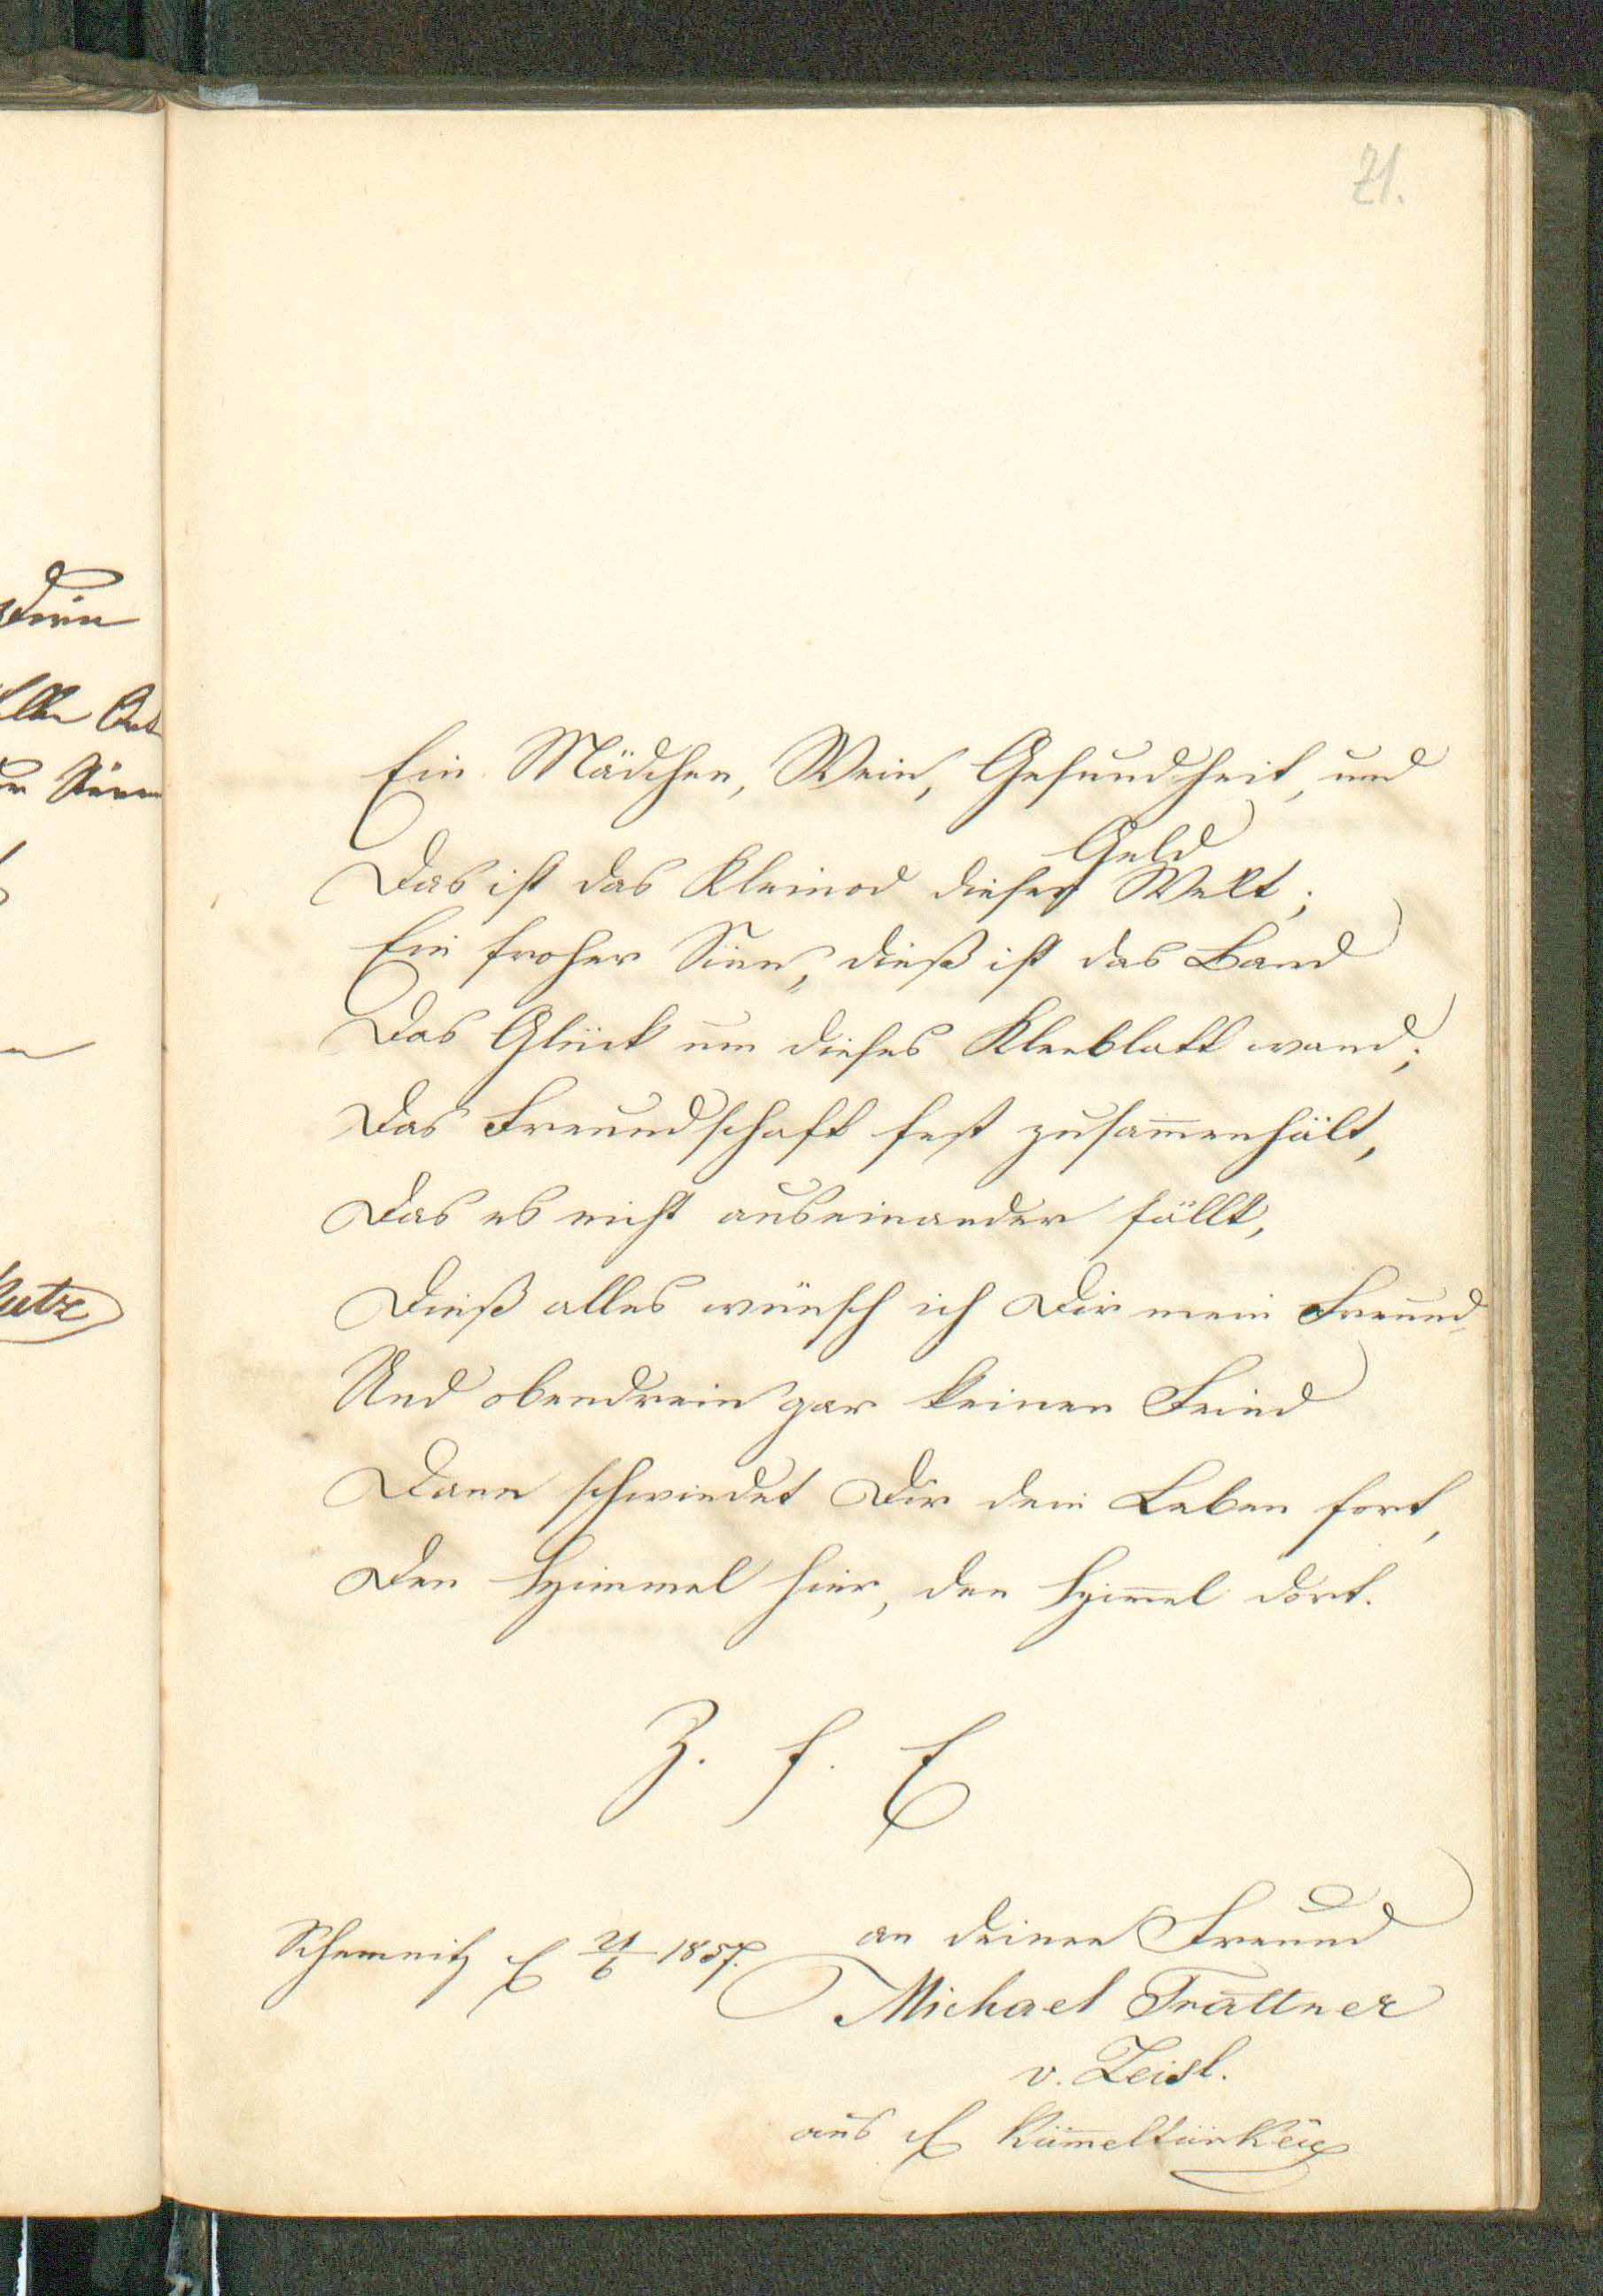 71.
Ein Mädchen, Wein, Gesundheit, und
Geld
Das ist das Kleinod dieser Welt;
Ein froher Sinn, dieß ist das Band
Das Glück um dieses Kleeblatt wand;
Das Freundschaft fest zusam̅enhält,
Das es nicht auseinander fällt,
Dieß alles wünsch ich Dir mein Freund,
Und obendrein gar keinen Feind
Dann schwindet Dir dein Leben fort,
Den Himmel hier, den Him̅el dort.
Z. f. E
Schemnitz 21/6 1857.
an deinen Freund
Michael Trattner
v. Zeisl.
aus Küm̅eltürkei